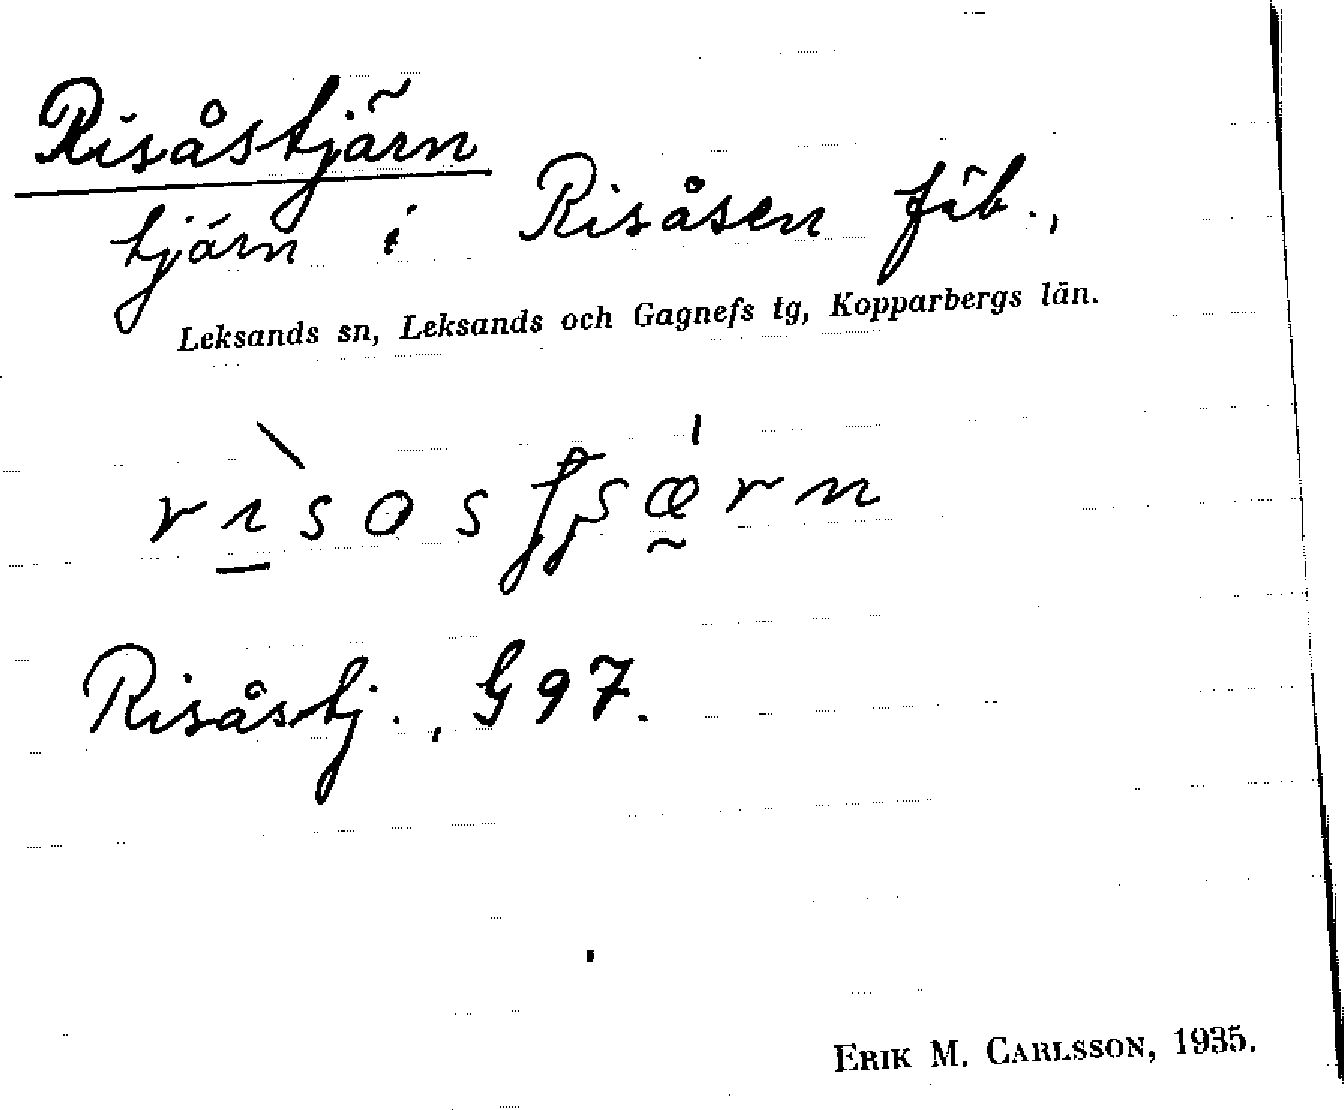 Risåstjärn
tjärn i Risåsen fäb.,
Leksands sn, Leksands och Gagnefs tg, Kopparbergs län.
Risåstj., G 97.
ERIK M. CARLSSON, 1935.